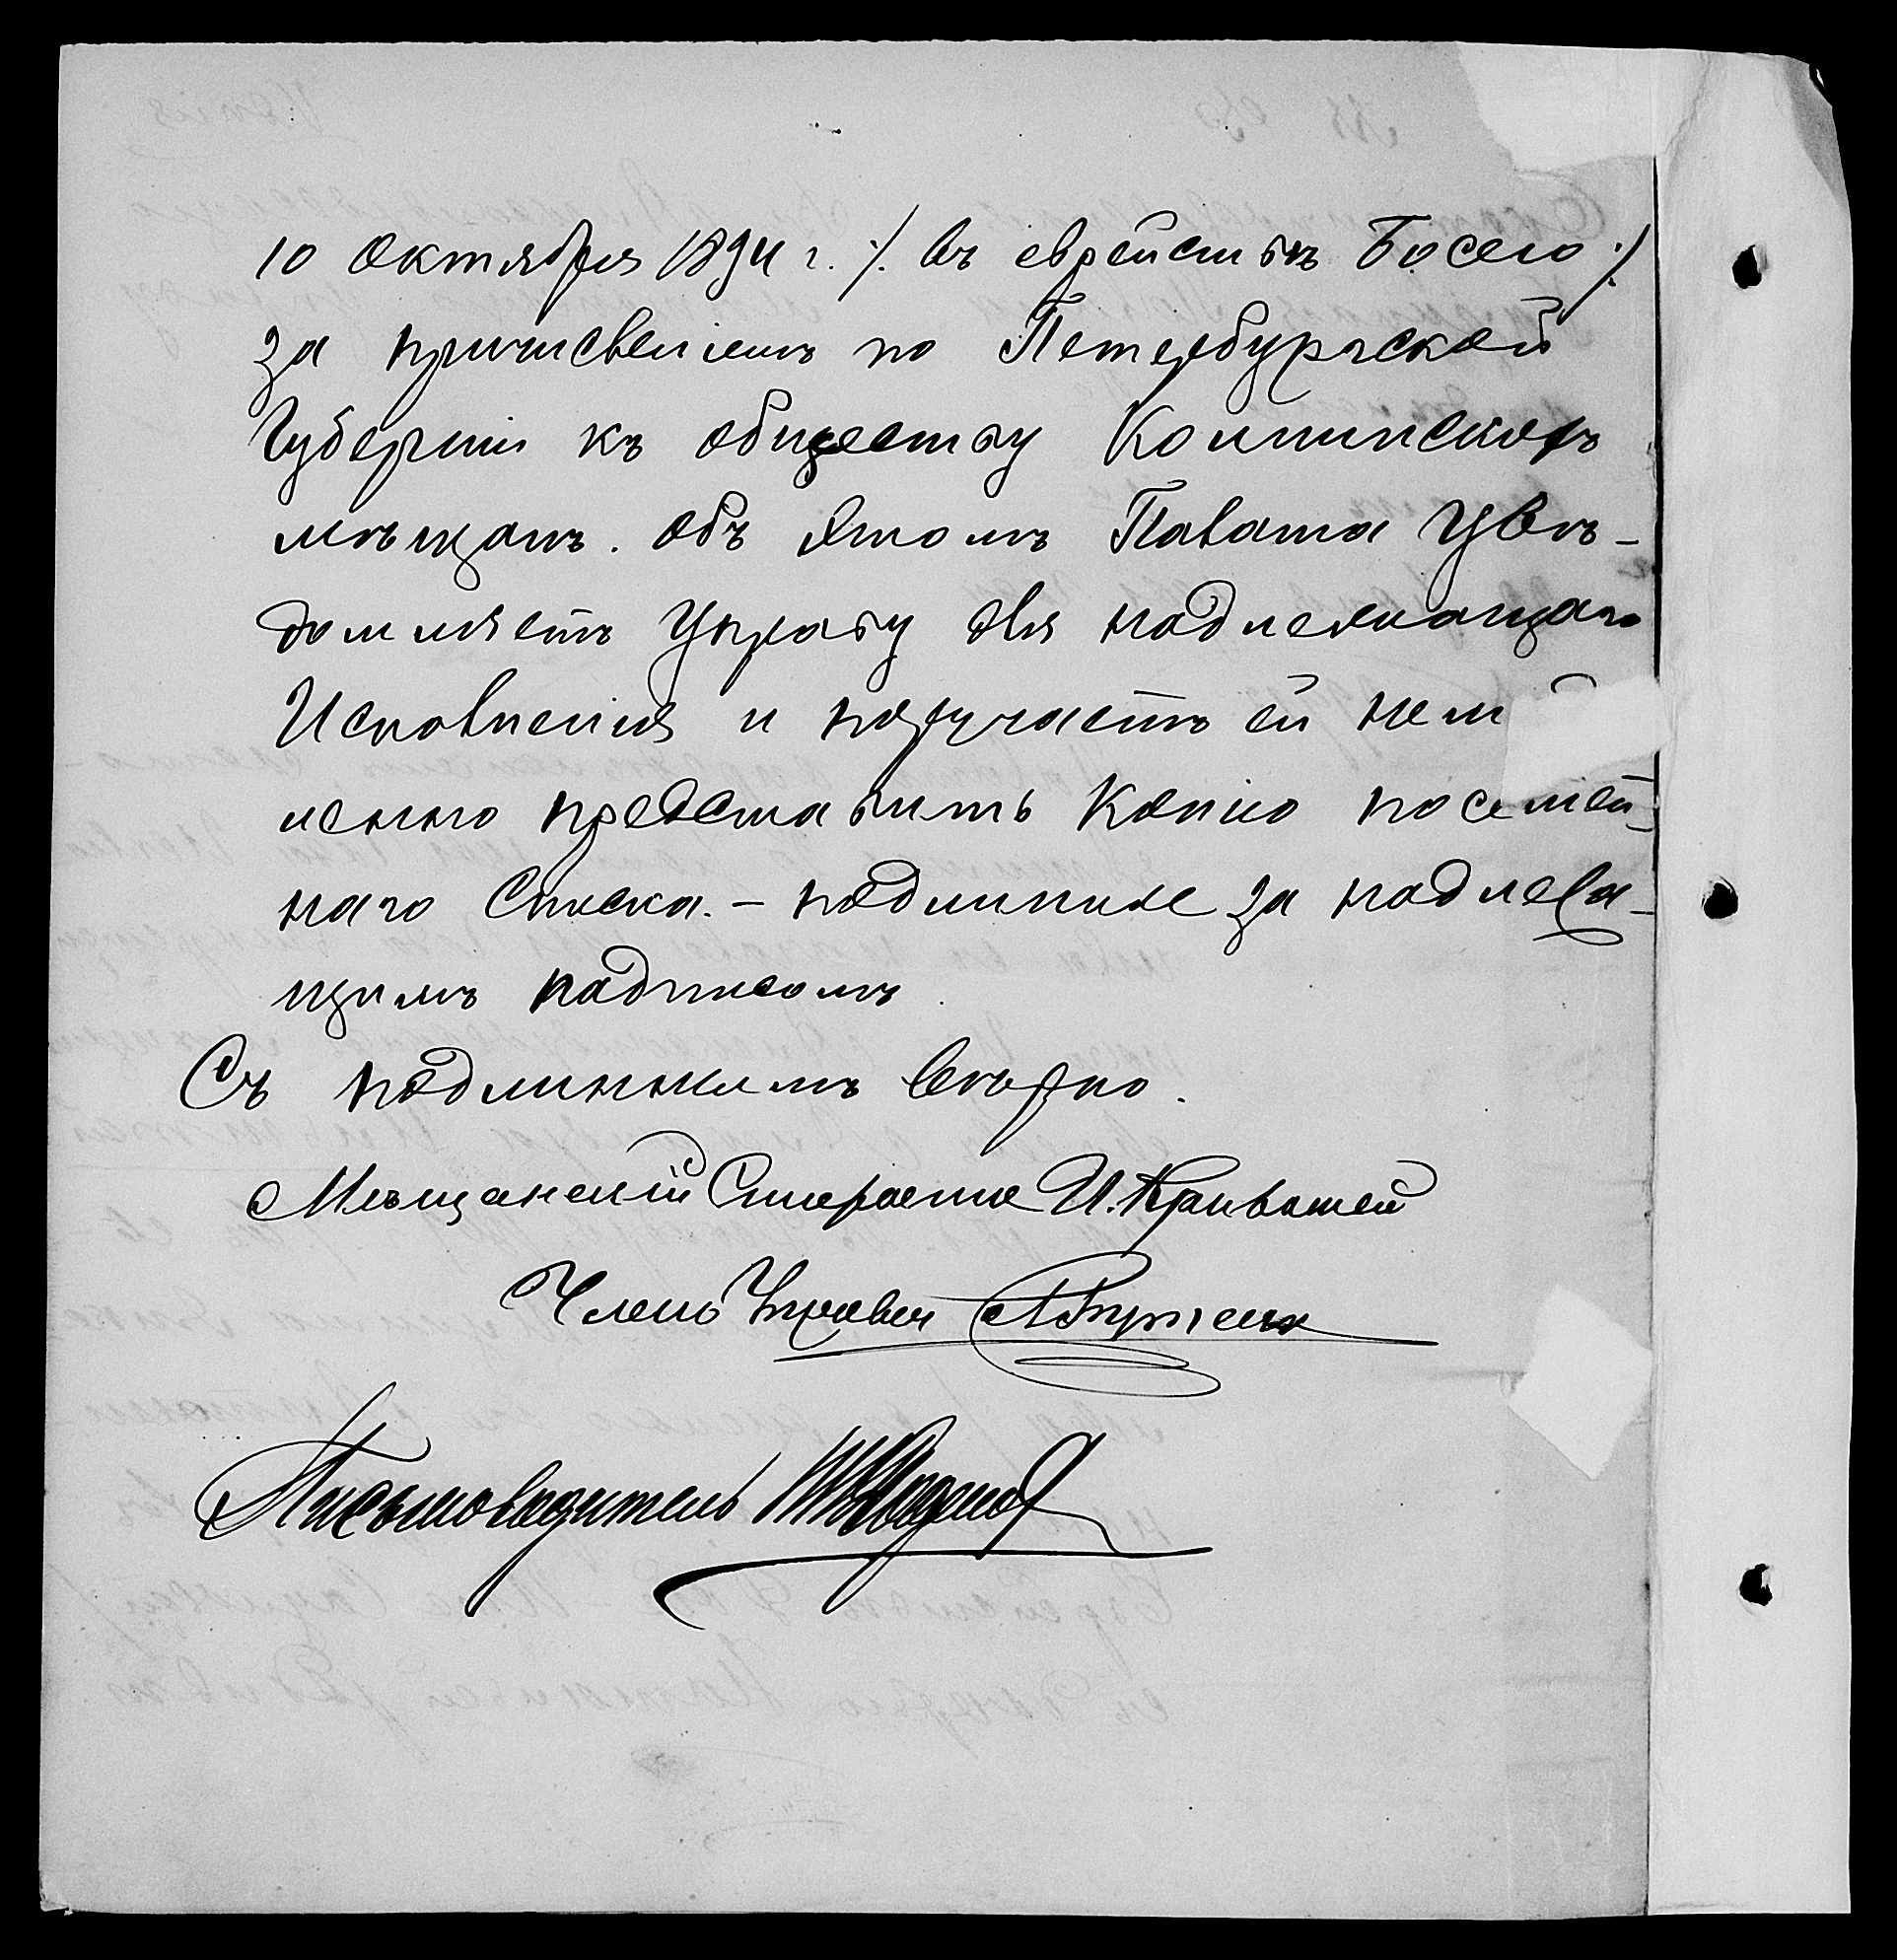 10 Октября 1894 г. ·/. въ еврействѣ Босого ./.
за причисленіемъ по Петербургской
Губерніи къ обществу Колпинскихъ
мѣщанъ. Объ этомъ Палата Увѣ-
домляетъ Управу для надлежащаго
Исполненія и поручаетъ ей нем
ленно представить Копію посемей-
наго Списка. – подлинное за надлежа-
щимъ подписомъ.
Съ подлиннымъ вѣрно.
Мѣщанскій Староста И.
Членъ Управы
Письмоводитель